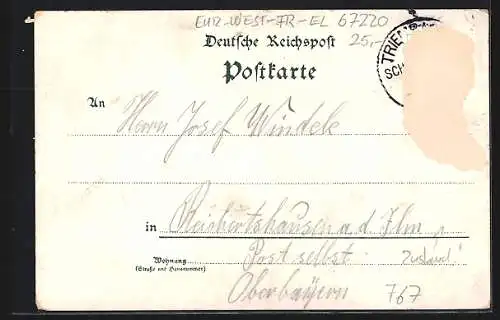 EUR-WEST-FR-EL 67220
Deutsche Reichspost 25,-
Postkarte
TRIE
SCH
An Herrn Josef Windele
in Reichertshausen a. d. Ilm
Post selbst. "Zustand"
Wohnung
(Straße und Hausnummer)
Oberbayern 767